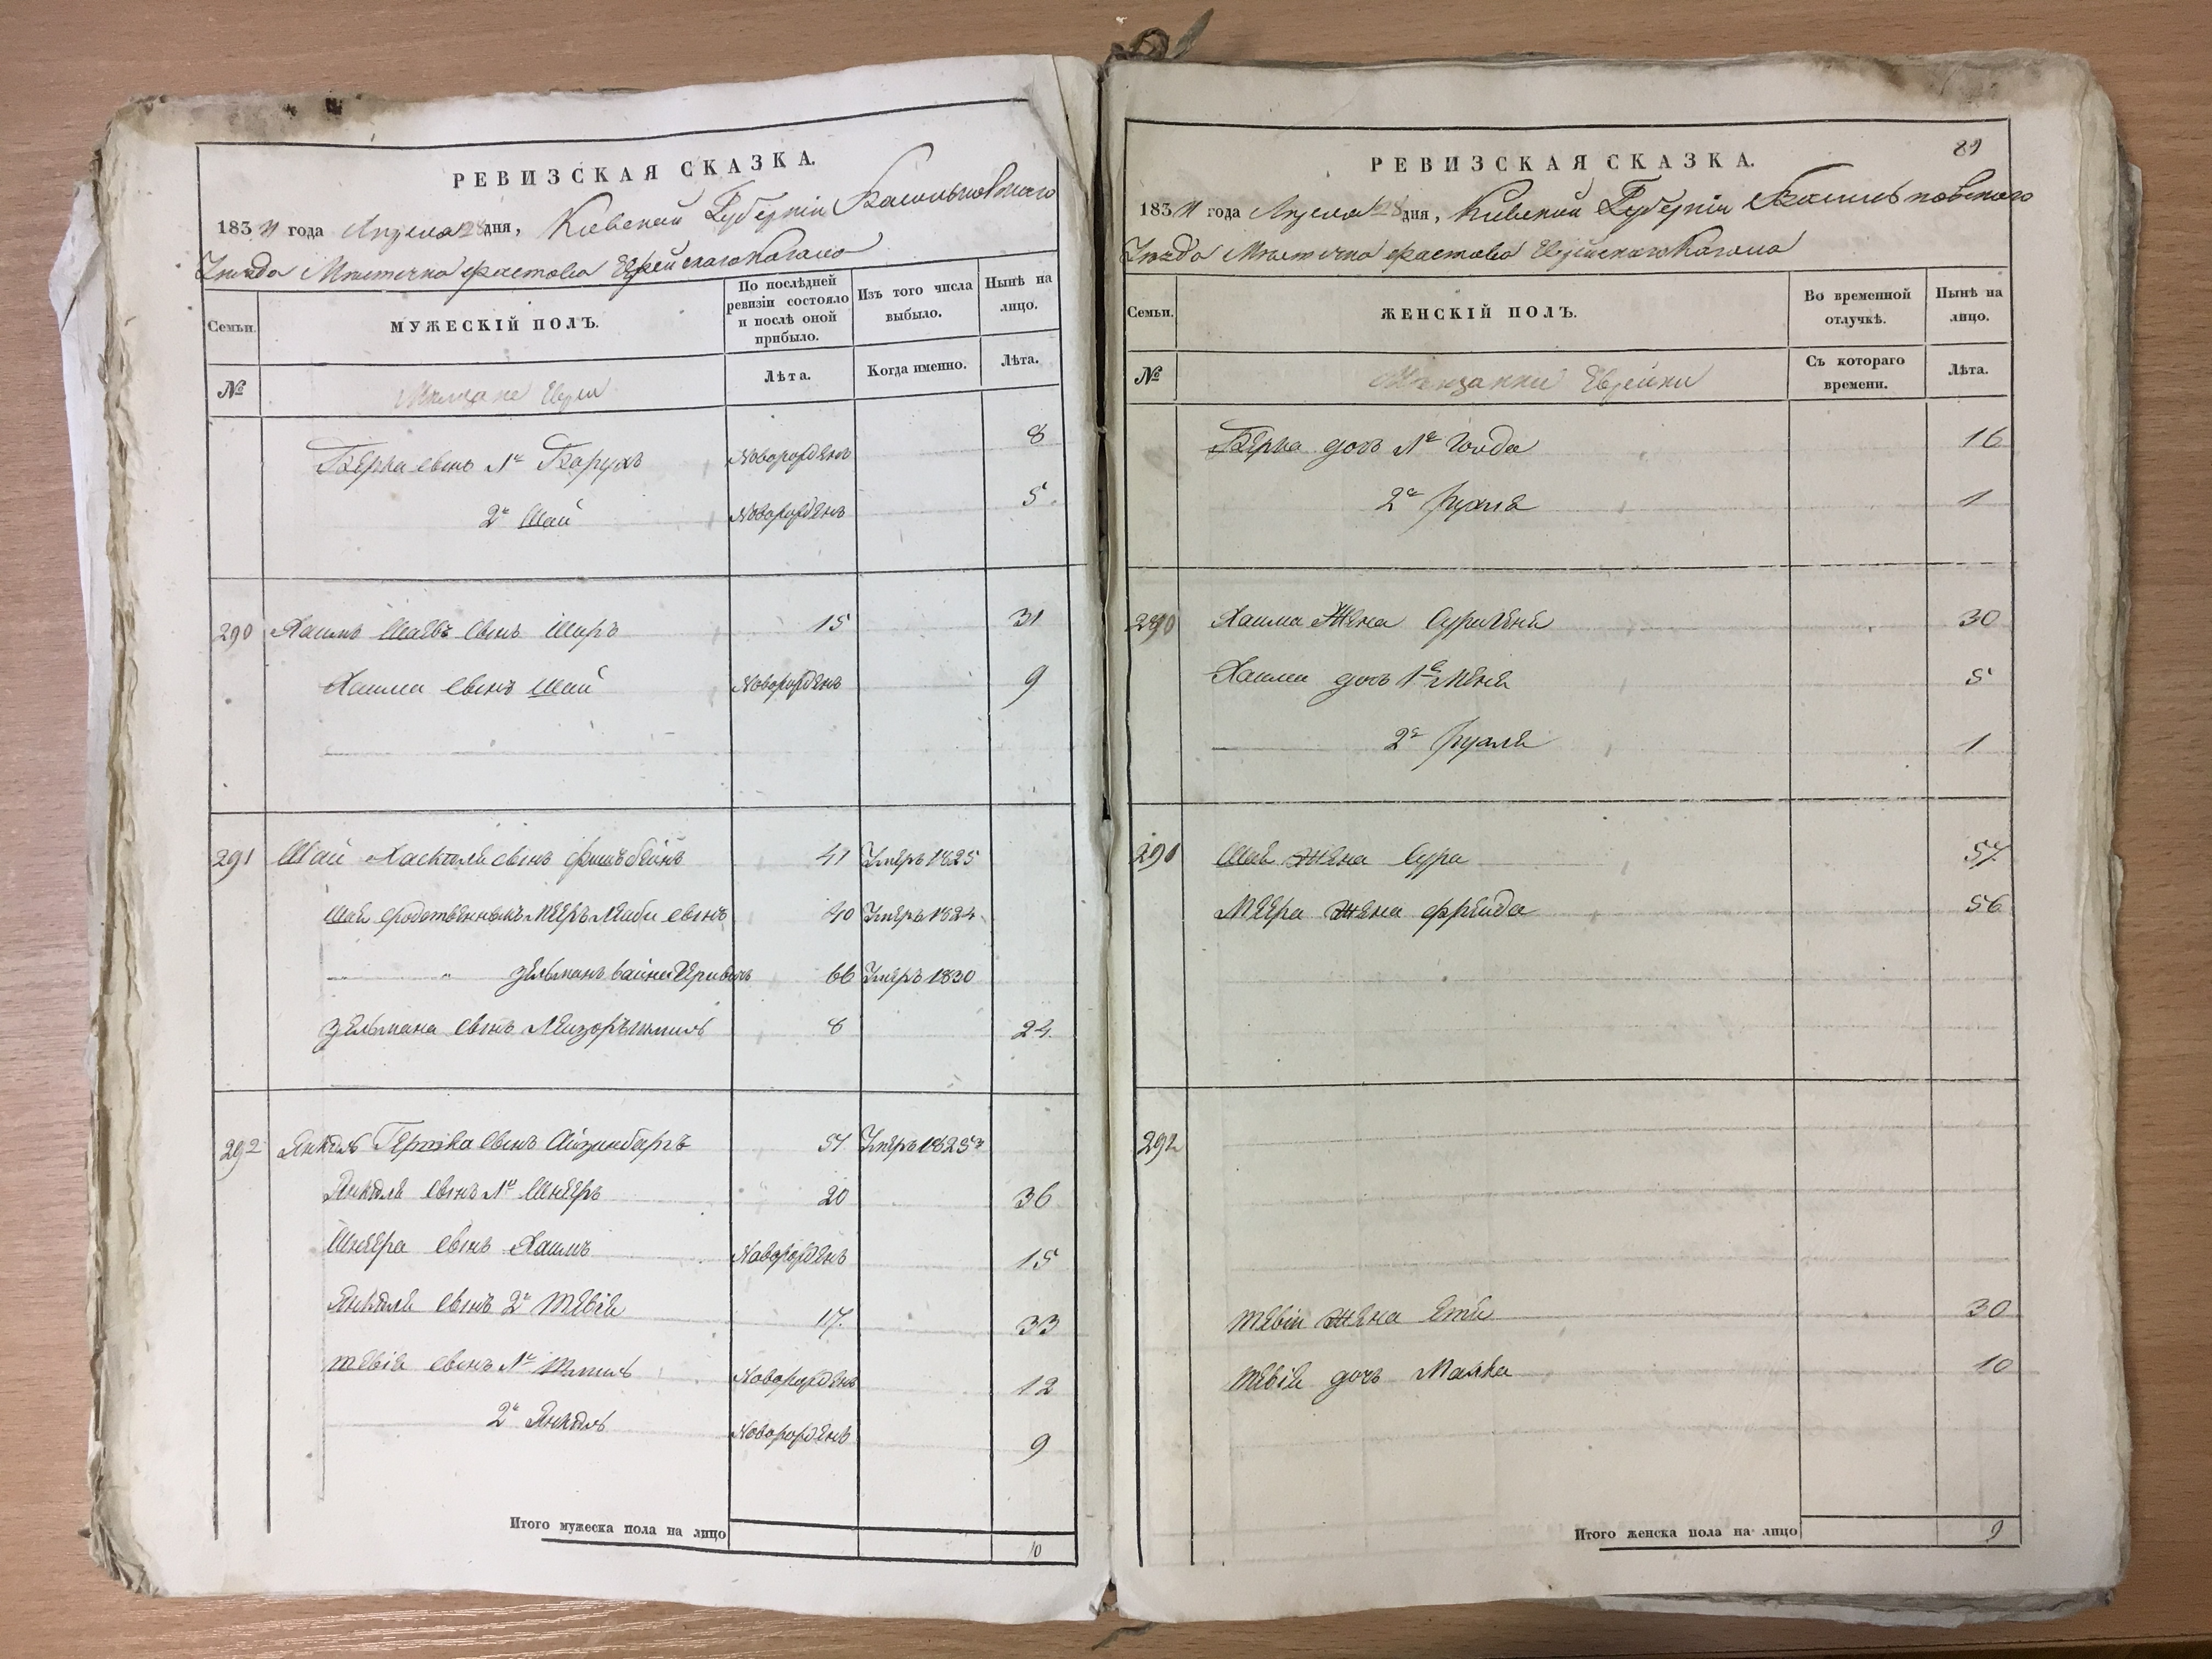 РЕВИЗСКАЯ СКАЗКА.
1834 года Апреля 28 дня, Киевской Губерніи Васильковскаго
Уезда Местечка Фастова Еврейскаго Кагала
Семьи.
МУЖЕСКІЙ ПОЛЪ.
По послѣдней ревизіи состояло и послѣ оной прибыло.
Изъ того числа выбыло.
Нынѣ на лицо.
№
Мещане Евреи
Лѣта.
Когда именно.
Лѣта.
Берка сынъ 1й Барухъ Новорожденъ 8
2й Шай Новорожденъ 5
290 Хаимъ Шаевъ сынъ 15 31
Хаима сынъ Шай Новорожденъ 9
291 Шай Хаскеля сынъ 41 Умеръ 1825
Шая Лейби сынъ 40 Умеръ 1824
" Зельманъ 66 Умеръ 1830
Зельмана сынъ 8 24
292 Янкель Гершка сынъ Айзенбергъ 51 Умеръ 1825
Янкеля сынъ 1й Шнееръ 20 36
Шнеера сынъ Хаимъ Новорожденъ 15
Янкеля сынъ 2й Тевіе 17 33
Тевіе сынъ 1й Новорожденъ 12
2й Янкель Новорожденъ 9
Итого мужеска пола на лицо 10
89
РЕВИЗСКАЯ СКАЗКА.
1834 года Апреля 28 дня, Киевской Губерніи Васильковскаго
Уезда Местечка Фастова Еврейскаго Кагала
Семьи.
ЖЕНСКІЙ ПОЛЪ.
Во временной отлучкѣ.
Нынѣ на лицо.
№
Мещанки Еврейки
Съ котораго времени.
Лѣта.
Берка дочь 1я Голда 16
2я Рухля 1
290 Хаима жена 30
Хаима дочь 1я Меня 5
2я 1
291 Шая жена Сура 57
Меера жена Фрейда 56
292
Тевіи жена Етя 30
Тевіе дочь Малка 10
Итого женска пола на лицо 9